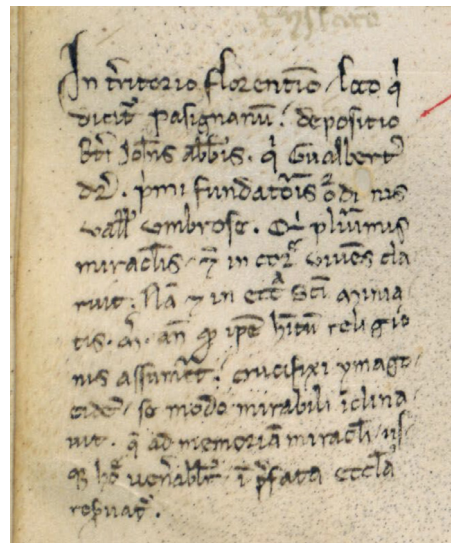 In t̄ritorio florentīo / loco q̇
dicit᷑ pasignanū . depositio
Sct̄i Joħns abb̄is . q̇ Gualbert᷑
dr̄ . ṗmi fundatōis or̄di nis
vall̄ vmbrose . Qui plurīmis
miracl̄is ⁊ in cor̄ vivēs cla
ruit . Nā ⁊ in ecc̄ Scī minia
tis . m̄ . añ qͫ ip̄e h̄itū religio
nis assumēt . crucifixi ymago
eidē / se modo mirabili īclina
uit . q̄ ad memoriā miracl̄i us
q̧ ho᷒ ven̄abl̄r ī p̄fata eccl̄a
res̄uat᷑ .